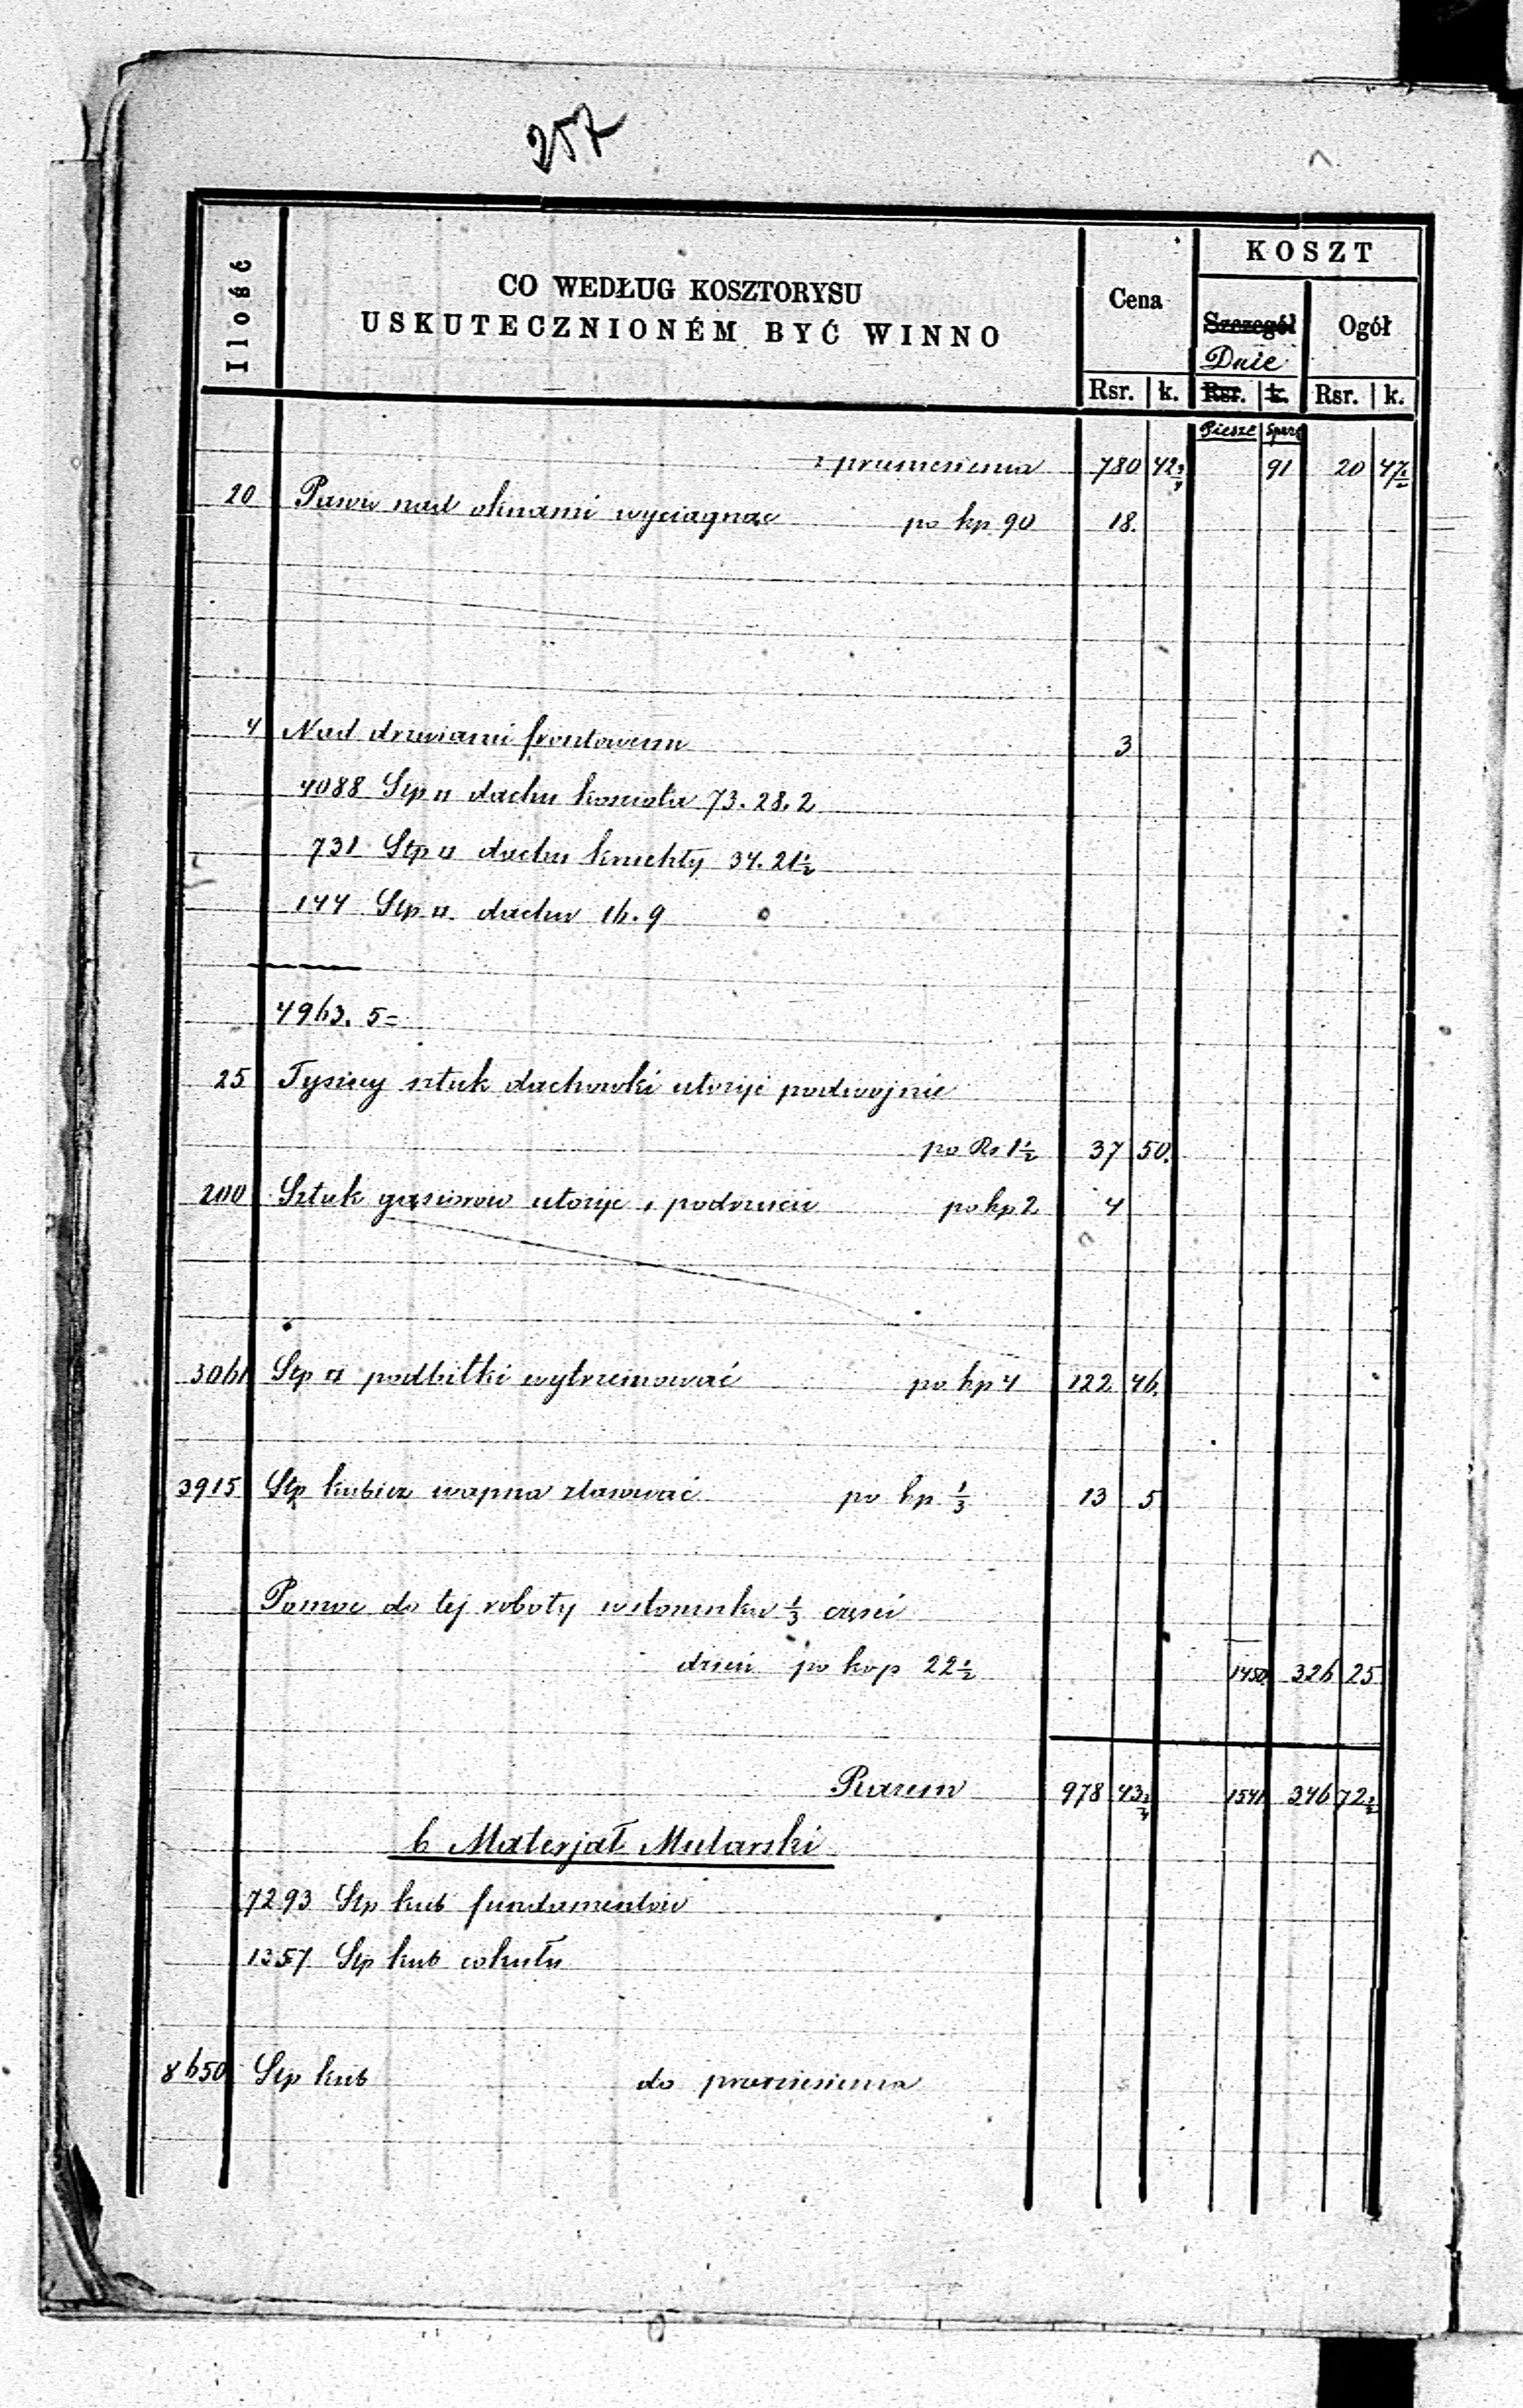 257
Ilość
CO WEDŁUG KOSZTORYSU
USKUTECZNIONÉM BYĆ WINNO
Cena
KOSZT
Szczegół
Dnie
Ogół
Rsr. k. Rsr. k. Rsr. k.
Piesze
z przeniesienia 780 42¾ 91 20 47½
20 nad oknami wyciągnąc po kp 90 18.
4 Nad drzwiami frontowem 3
4088 Stp □ dachu kosciola 73.28.2
731 Stp □ dachu kruchty 34.21½
144 Stp □ dachu 16.9
4963. 5=
25 Tysięcy sztuk dachowki ułożyć podwojnie
po Rs 1½ 37 50.
200 Sztuk gąsiorow ułożyc i podrzucic po kp 2 4
3061 Stp □ podbitki wytrzcinować po kp 4 122 46.
3915 Stp kubicz wapna zlasować po kp ⅓ 13 5
Pomoc do tej roboty w stosunku ⅓ części
dzień po kop 22½ 1450. 326 25
Razem 978 43¾ 1541 346 72½
b Materjał Mularski
7293 Stp kub fundamentów
1357 Stp kub cokułu
8650 Stp kub do przeniesienia